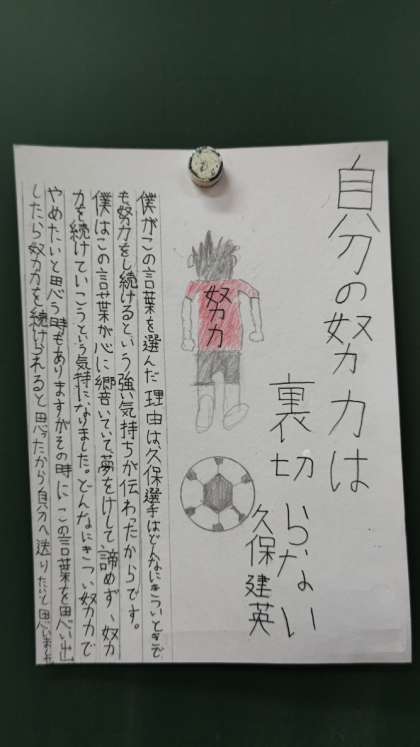 自分の努力は
裏切らない
久保建英
努力
僕がこの言葉を選んだ理由は、久保選手はどんなにきついときで
も努力をし続けるという強い気持ちが伝わったからです。
僕はこの言葉が心に響いていて夢をけして諦めず、努
力を続けていこうという気持になりました。どんなにきつい努力で
やめたいと思う時もありますがその時に この言葉を思い出
したら努力を続けられると思ったから自分へ送りたいと思います